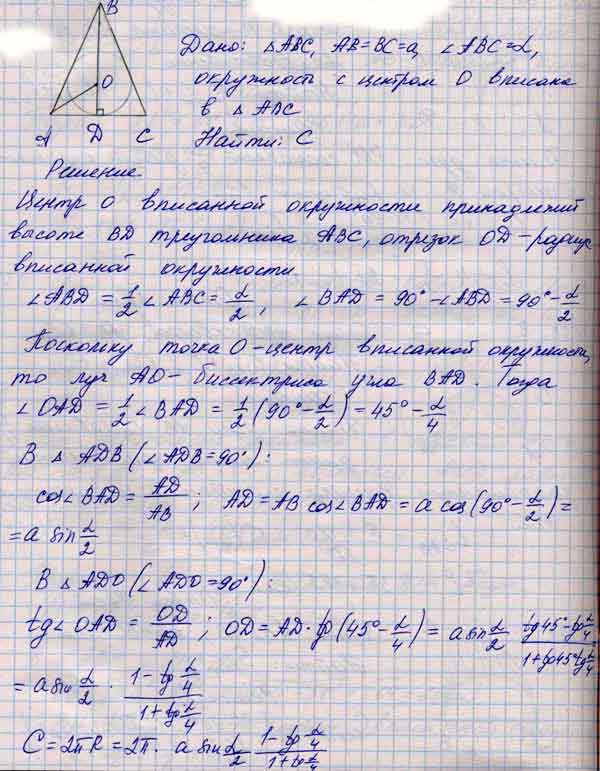 B
O
A D C
Дано: △ABC, AB=BC=a, ∠ABC=α,
окружность с центром О вписана
в △ABC
Найти: C
Решение
Центр О вписанной окружности принадлежит
высоте BD треугольника ABC, отрезок OD - радиус
вписанной окружности.
∠ABD = 1/2 ∠ABC = α/2, ∠BAD = 90° - ∠ABD = 90° - α/2
Поскольку точка О - центр вписанной окружности,
то луч AO - биссектриса угла BAD. Тогда
∠OAD = 1/2 ∠BAD = 1/2 (90° - α/2) = 45° - α/4
В △ADB (∠ADB = 90°):
cos∠BAD = AD/AB; AD = AB cos∠BAD = a cos(90° - α/2) =
= a sin α/2
В △ADO (∠ADO = 90°):
tg∠OAD = OD/AD; OD = AD · tg(45° - α/4) = a sin α/2 (tg45° - tg α/4)/(1 + tg45° tg α/4)
= a sin α/2 · (1 - tg α/4)/(1 + tg α/4)
C = 2πR = 2π · a sin α/2 (1 - tg α/4)/(1 + tg α/4)